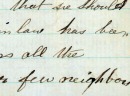 that she should
in law has been
as all the
a few neighbor